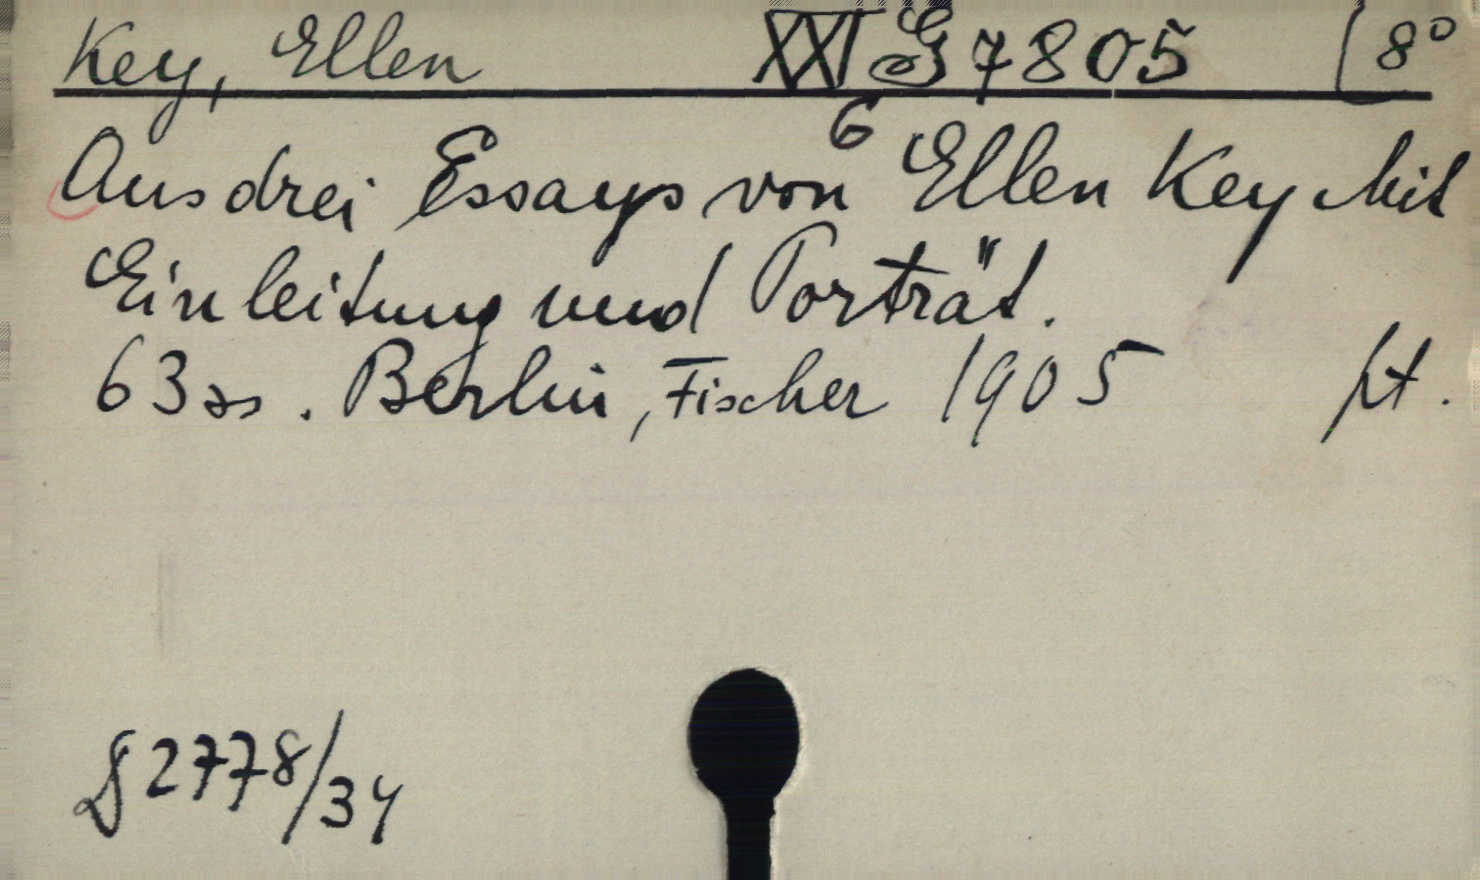 Key, Ellen XXI G 7805 [8°
6
Aus drei Essays von Ellen Key Mit
Einleitung und Porträt.
63 ss. Berlin, Fischer 1905 ft.
2778/34